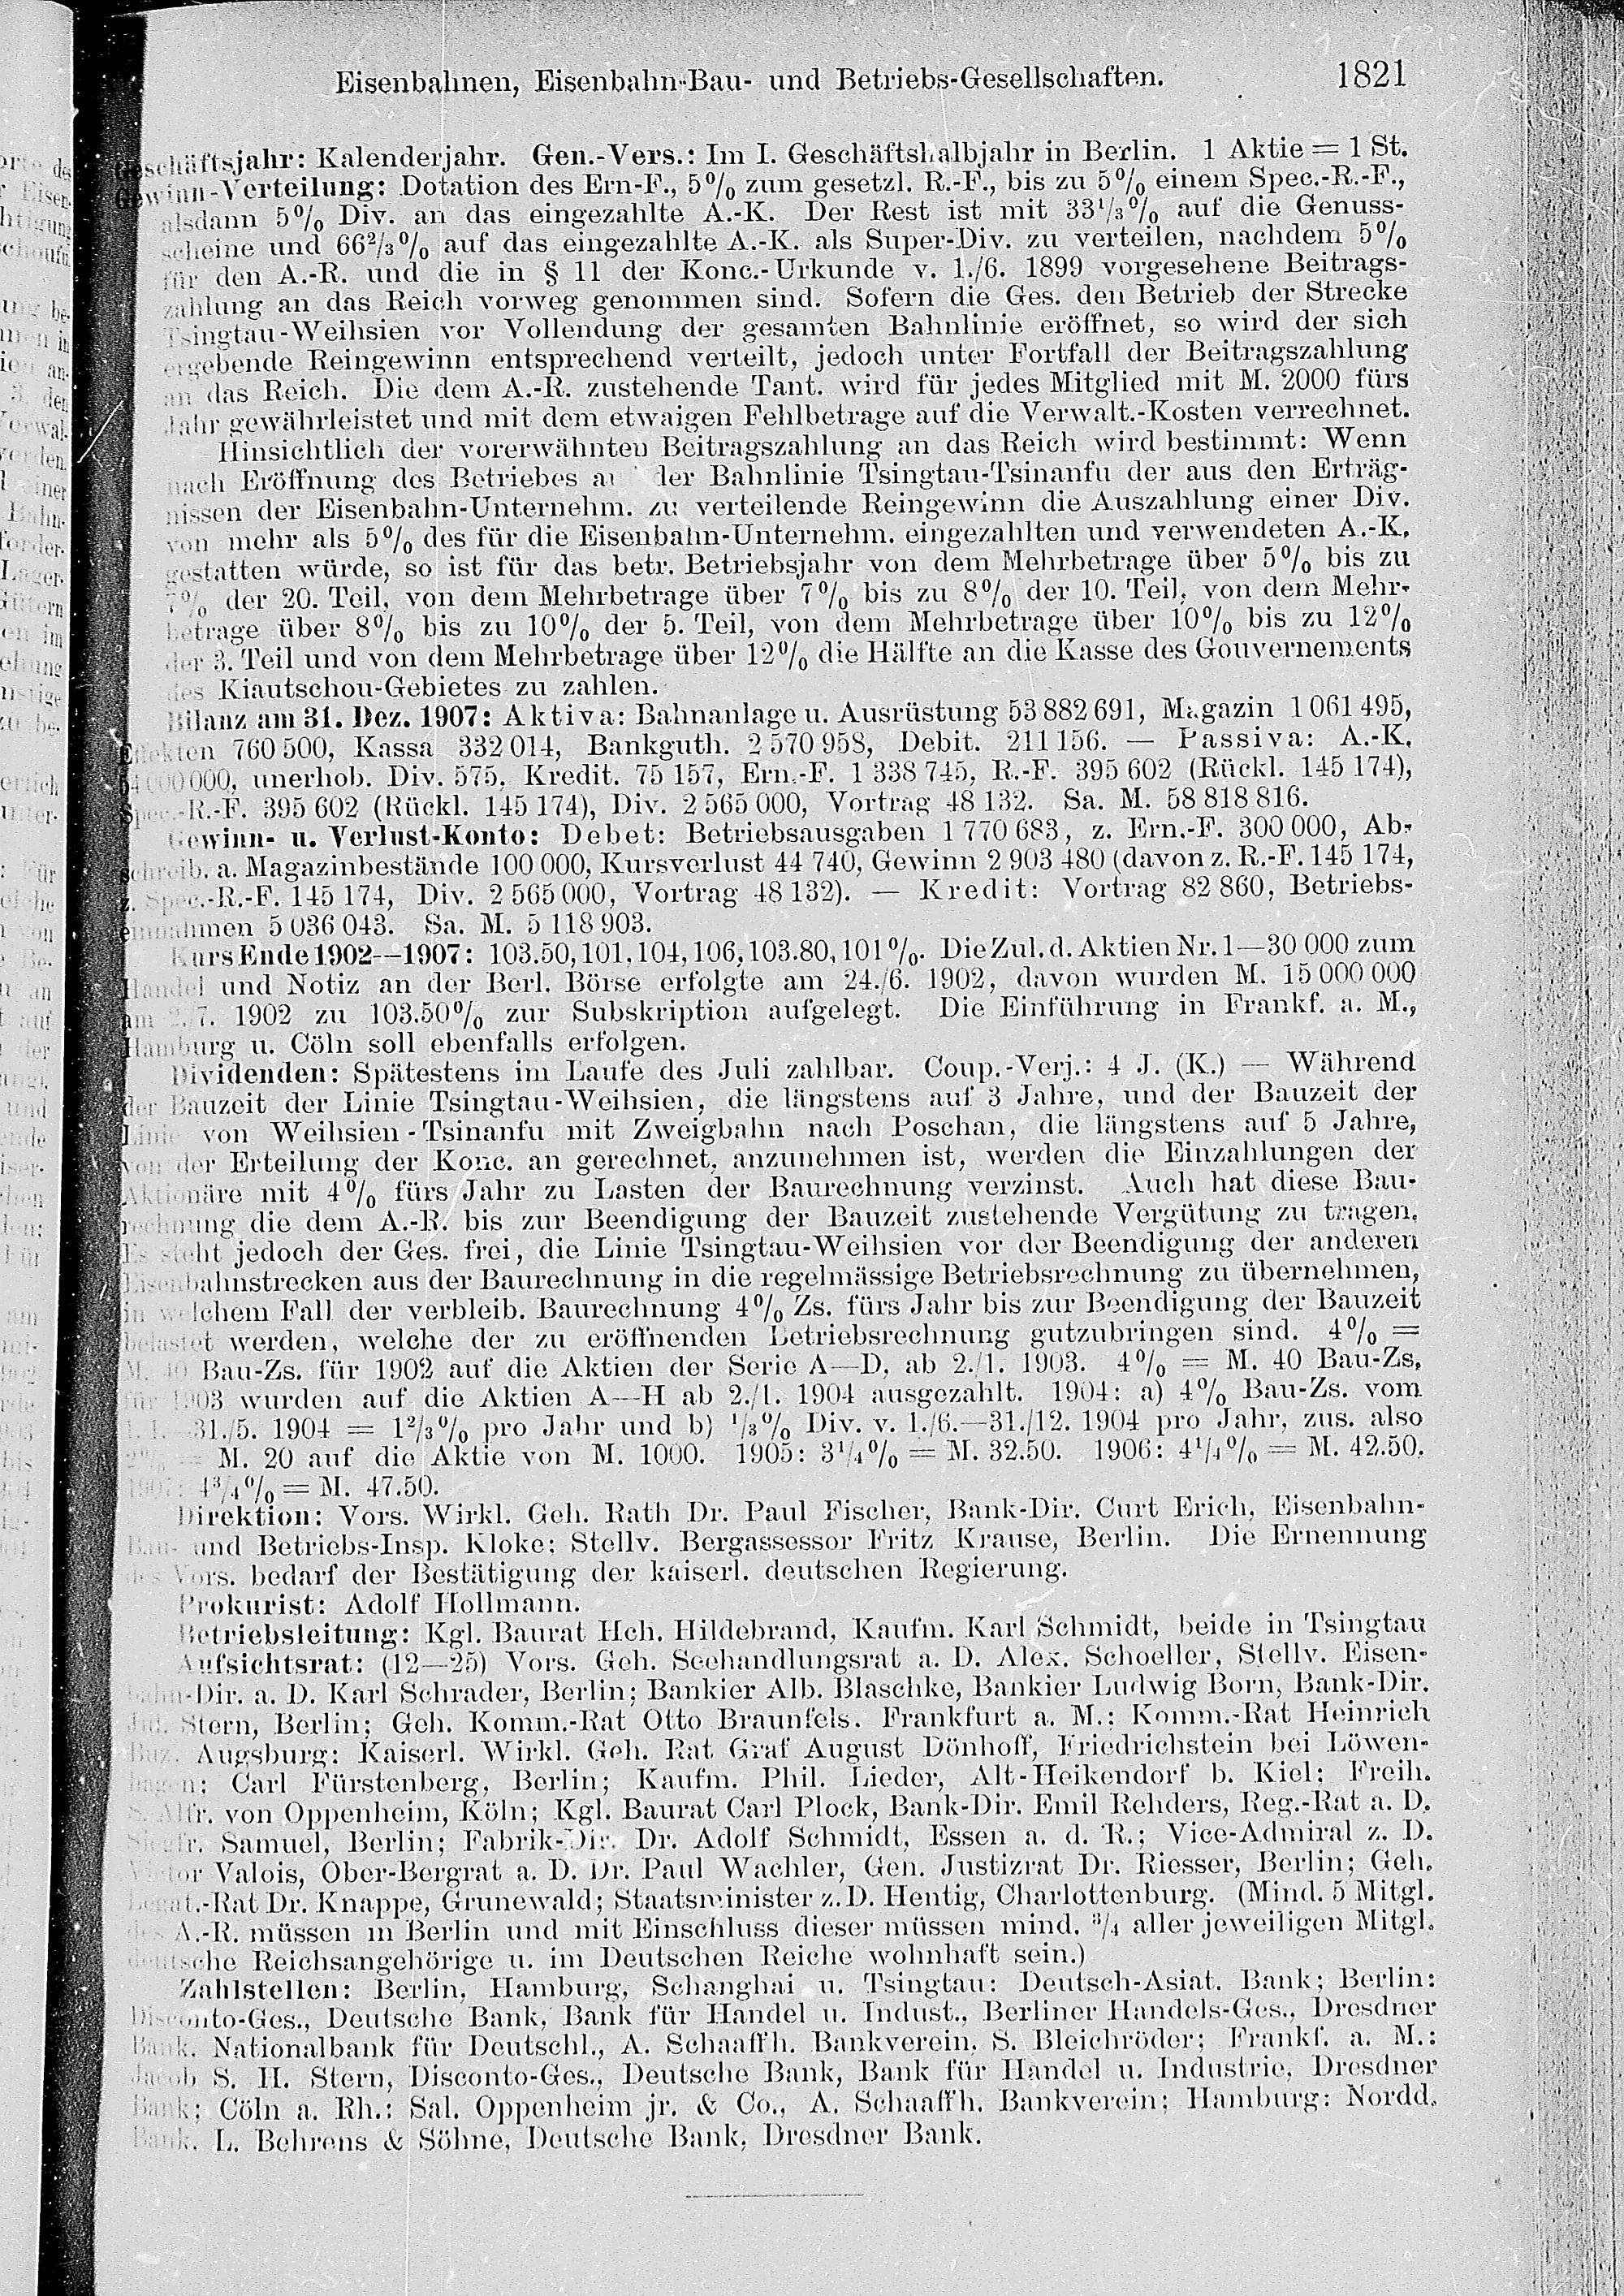 Eisenbahnen, Eisenbahn-Bau- und Betriebs-Gesellschaften. 1821
Geschäftsjahr: Kalenderjahr. Gen.-Vers.: Im I. Geschäftshalbjahr in Berlin. 1 Aktie = 1 St.
Gewinn-Verteilung: Dotation des Ern-F., 5% zum gesetzl. R.-F., bis zu 5% einem Spec.-R.-F.,
alsdann 5% Div. an das eingezahlte A.-K. Der Rest ist mit 33⅓% auf die Genuss-
scheine und 66⅔% auf das eingezahlte A.-K. als Super-Div. zu verteilen, nachdem 5%
für den A.-R. und die in § 11 der Konc.-Urkunde v. 1./6. 1899 vorgesehene Beitrags-
zahlung an das Reich vorweg genommen sind. Sofern die Ges. den Betrieb der Strecke
Tsingtau-Weihsien vor Vollendung der gesamten Bahnlinie eröffnet, so wird der sich
ergebende Reingewinn entsprechend verteilt, jedoch unter Fortfall der Beitragszahlung
an das Reich. Die dem A.-R. zustehende Tant. wird für jedes Mitglied mit M. 2000 fürs
Jahr gewährleistet und mit dem etwaigen Fehlbetrage auf die Verwalt.-Kosten verrechnet.
Hinsichtlich der vorerwähnten Beitragszahlung an das Reich wird bestimmt: Wenn
nach Eröffnung des Betriebes der Bahnlinie Tsingtau-Tsinanfu der aus den Erträg-
nissen der Eisenbahn-Unternehm. zu verteilende Reingewinn die Auszahlung einer Div.
von mehr als 5% des für die Eisenbahn-Unternehm. eingezahlten und verwendeten A.-K.
gestatten würde, so ist für das betr. Betriebsjahr von dem Mehrbetrage über 5% bis zu
7% der 20. Teil, von dem Mehrbetrage über 7% bis zu 8% der 10. Teil, von dem Mehr-
betrage über 8% bis zu 10% der 5. Teil, von dem Mehrbetrage über 10% bis zu 12%
der 3. Teil und von dem Mehrbetrage über 12% die Hälfte an die Kasse des Gouvernements
des Kiautschou-Gebietes zu zahlen.
Bilanz am 31. Dez. 1907: Aktiva: Bahnanlage u. Ausrüstung 53 882 691, Magazin 1 061 495,
Effekten 760 500, Kassa 332 014, Bankguth. 2 570 958, Debit. 211 156. — Passiva: A.-K.
54 000 000, unerhob. Div. 575, Kredit. 75 157, Ern.-F. 1 338 745, R.-F. 395 602 (Rückl. 145 174),
Spec.-R.-F. 395 602 (Rückl. 145 174), Div. 2 565 000, Vortrag 48 132. Sa. M. 58 818 816.
Gewinn- u. Verlust-Konto: Debet: Betriebsausgaben 1 770 683, z. Ern.-F. 300 000, Ab-
schreib. a. Magazinbestände 100 000, Kursverlust 44 740, Gewinn 2 903 480 (davon z. R.-F. 145 174,
z. Spec.-R.-F. 145 174, Div. 2 565 000, Vortrag 48 132). — Kredit: Vortrag 82 860, Betriebs-
einnahmen 5 036 043. Sa. M. 5 118 903.
Kurs Ende 1902—1907: 103.50, 101, 104, 106, 103.80, 101%. Die Zul. d. Aktien Nr. 1—30 000 zum
Handel und Notiz an der Berl. Börse erfolgte am 24./6. 1902, davon wurden M. 15 000 000
am 2./7. 1902 zu 103.50% zur Subskription aufgelegt. Die Einführung in Frankf. a. M.,
Hamburg u. Cöln soll ebenfalls erfolgen.
Dividenden: Spätestens im Laufe des Juli zahlbar. Coup.-Verj.: 4 J. (K.) — Während
der Bauzeit der Linie Tsingtau-Weihsien, die längstens auf 3 Jahre, und der Bauzeit der
Linie von Weihsien-Tsinanfu mit Zweigbahn nach Poschan, die längstens auf 5 Jahre,
von der Erteilung der Konc. an gerechnet, anzunehmen ist, werden die Einzahlungen der
Aktionäre mit 4% fürs Jahr zu Lasten der Baurechnung verzinst. Auch hat diese Bau-
rechnung die dem A.-R. bis zur Beendigung der Bauzeit zustehende Vergütung zu tragen.
Es steht jedoch der Ges. frei, die Linie Tsingtau-Weihsien vor der Beendigung der anderen
Eisenbahnstrecken aus der Baurechnung in die regelmässige Betriebsrechnung zu übernehmen,
in welchem Fall der verbleib. Baurechnung 4% Zs. fürs Jahr bis zur Beendigung der Bauzeit
belastet werden, welche der zu eröffnenden Betriebsrechnung gutzubringen sind. 4% =
M. 40 Bau-Zs. für 1902 auf die Aktien der Serie A—D, ab 2./1. 1903. 4% = M. 40 Bau-Zs.
für 1903 wurden auf die Aktien A—H ab 2./1. 1904 ausgezahlt. 1904: a) 4% Bau-Zs. vom
1./1.—31./5. 1904 = 1⅔% pro Jahr und b) ⅓% Div. v. 1./6.—31./12. 1904 pro Jahr, zus. also
2% = M. 20 auf die Aktie von M. 1000. 1905: 3¼% = M. 32.50. 1906: 4¼% = M. 42.50.
1907: 4¾% = M. 47.50.
Direktion: Vors. Wirkl. Geh. Rath Dr. Paul Fischer, Bank-Dir. Curt Erich, Eisenbahn-
Bau- und Betriebs-Insp. Kloke; Stellv. Bergassessor Fritz Krause, Berlin. Die Ernennung
des Vors. bedarf der Bestätigung der kaiserl. deutschen Regierung.
Prokurist: Adolf Hollmann.
Betriebsleitung: Kgl. Baurat Hch. Hildebrand, Kaufm. Karl Schmidt, beide in Tsingtau
Aufsichtsrat: (12—25) Vors. Geh. Seehandlungsrat a. D. Alex. Schoeller, Stellv. Eisen-
bahn-Dir. a. D. Karl Schrader, Berlin; Bankier Alb. Blaschke, Bankier Ludwig Born, Bank-Dir.
Jul. Stern, Berlin; Geh. Komm.-Rat Otto Braunfels. Frankfurt a. M.; Komm.-Rat Heinrich
Buz. Augsburg: Kaiserl. Wirkl. Geh. Rat Graf August Dönhoff, Friedrichstein bei Löwen-
hagen; Carl Fürstenberg, Berlin; Kaufm. Phil. Lieder, Alt-Heikendorf b. Kiel; Freih.
S. Alfr. von Oppenheim, Köln; Kgl. Baurat Carl Plock, Bank-Dir. Emil Rehders, Reg.-Rat a. D.
Siegfr. Samuel, Berlin; Fabrik-Dir. Dr. Adolf Schmidt, Essen a. d. R.; Vice-Admiral z. D.
Victor Valois, Ober-Bergrat a. D. Dr. Paul Wachler, Gen. Justizrat Dr. Riesser, Berlin; Geh.
Legat.-Rat Dr. Knappe, Grunewald; Staatsminister z. D. Hentig, Charlottenburg. (Mind. 5 Mitgl.
des A.-R. müssen in Berlin und mit Einschluss dieser müssen mind. ¾ aller jeweiligen Mitgl.
deutsche Reichsangehörige u. im Deutschen Reiche wohnhaft sein.)
Zahlstellen: Berlin, Hamburg, Schanghai u. Tsingtau: Deutsch-Asiat. Bank; Berlin:
Disconto-Ges., Deutsche Bank, Bank für Handel u. Indust., Berliner Handels-Ges., Dresdner
Bank, Nationalbank für Deutschl., A. Schaaffh. Bankverein, S. Bleichröder; Frankf. a. M.:
Jacob S. H. Stern, Disconto-Ges., Deutsche Bank, Bank für Handel u. Industrie, Dresdner
Bank; Cöln a. Rh.: Sal. Oppenheim jr. & Co., A. Schaaffh. Bankverein; Hamburg: Nordd.
Bank, L. Behrens & Söhne, Deutsche Bank, Dresdner Bank.